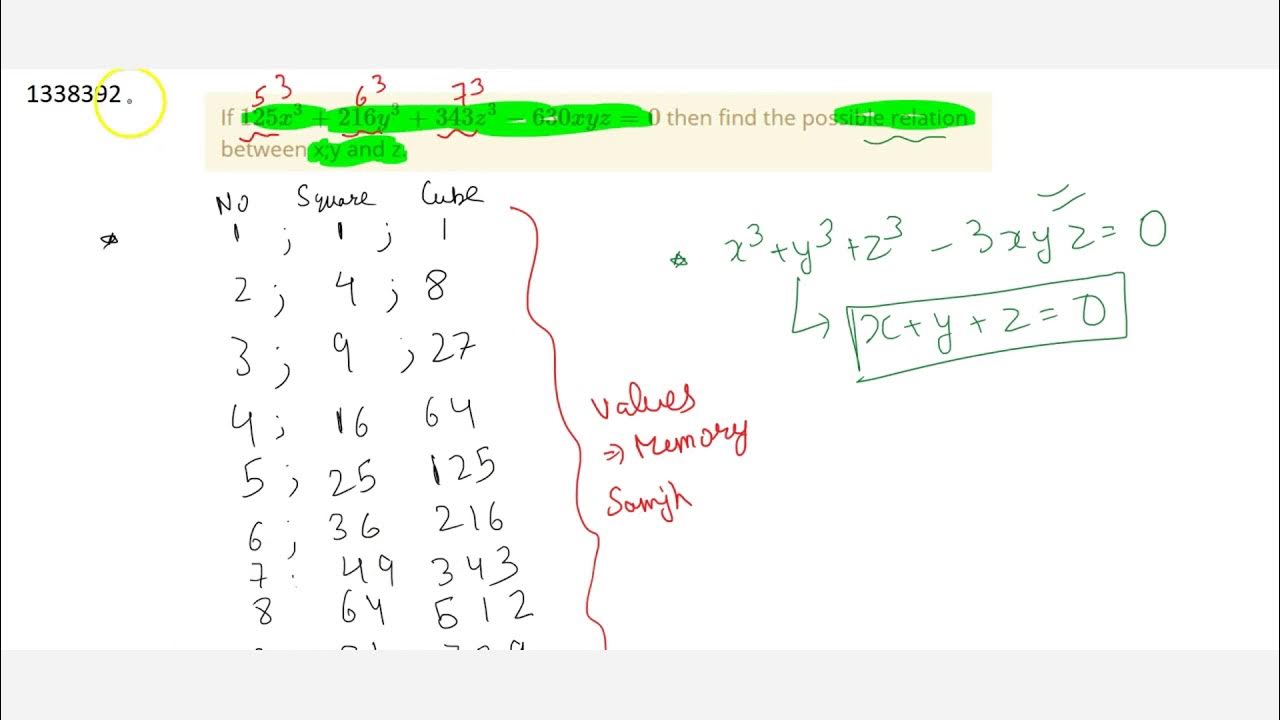 1338392 .
5³ 6³ 7³
If 125x³ + 216y³ + 343z³ − 630xyz = 0 then find the possible relation
between x,y and z.
No Square Cube
1 ; 1 ; 1
2 ; 4 ; 8
3 ; 9 ; 27
4 ; 16 64
5 ; 25 125
6 ; 36 216
7 : 49 343
8 64 512
x³ + y³ + z³ − 3xyz = 0
↳ x + y + z = 0
Values
⇒ Memory
Samjh